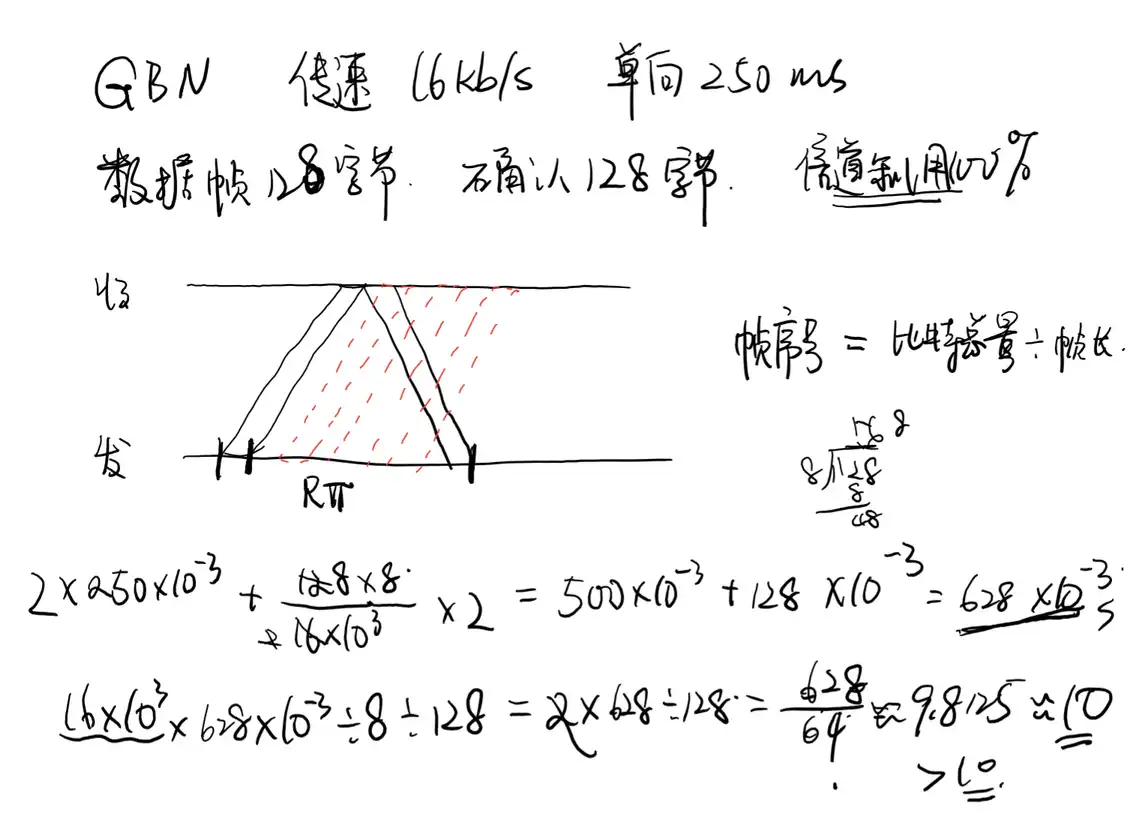 GBN 传速 16kb/s 单向 250 ms
数据帧 128字节. 确认 128字节. 信道利用100%
收
帧序号 = 比特总量 ÷ 帧长.
发
RTT
8 128
8
48
2×250×10⁻³ + 128×8 / 16×10³ ×2 = 500×10⁻³ + 128 ×10⁻³ = 628 ×10⁻³ s
16×10³ × 628×10⁻³ ÷8 ÷128 = 2×628÷128 = 628/64 ≈ 9.8125 ≈ 10
> 10.